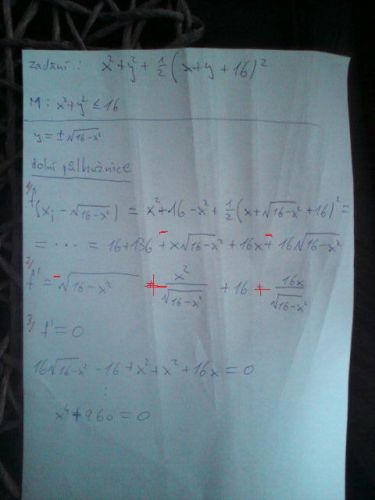 zadání: x²+y²+½(x+y+16)²
M: x²+y² ≤ 16
y = ±√16-x²
dolní půlkružnice
1, f(x; -√16-x²) = x²+16-x²+½(x+√16-x²+16)² =
= ... = 16+136 - x√16-x² + 16x - 16√16-x²
2, f' = -√16-x² + x²/√16-x² + 16 + 16x/√16-x²
3, f' = 0
16√16-x² - 16 + x² + x² + 16x = 0
⋮
x⁴ + 960 = 0